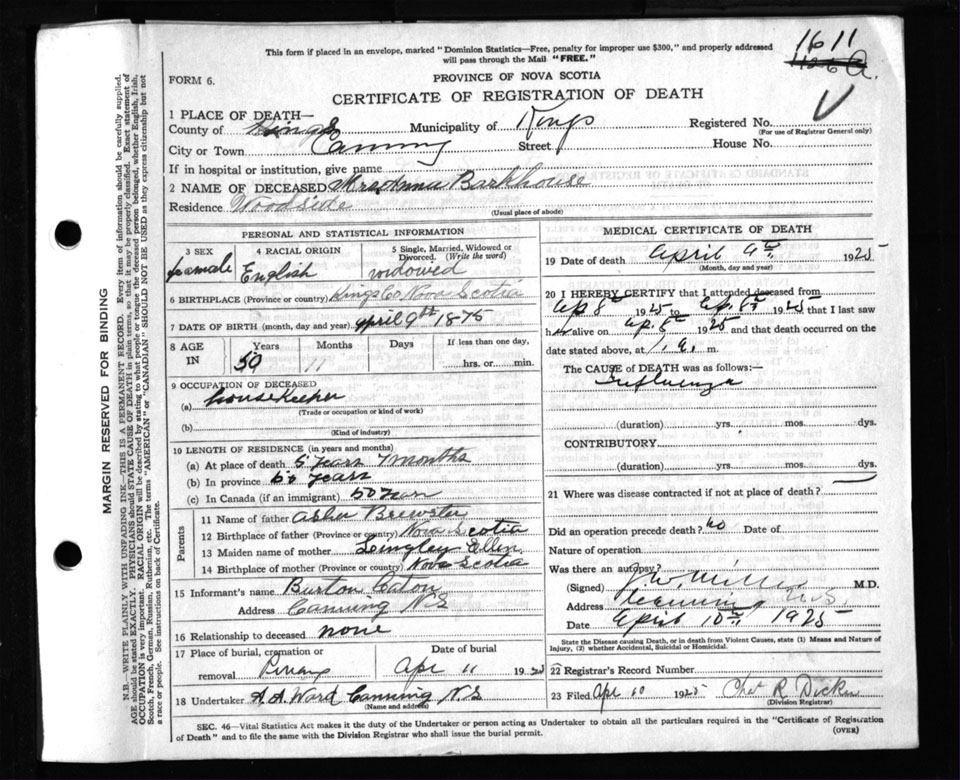 This form if placed in an envelope, marked "Dominion Statistics—Free, penalty for improper use $300," and properly addressed
will pass through the Mail "FREE."
1611
126 a.
FORM 6.
PROVINCE OF NOVA SCOTIA
CERTIFICATE OF REGISTRATION OF DEATH
1 PLACE OF DEATH—
County of Kings Municipality of Kings Registered No.
(For use of Registrar General only)
City or Town Canning Street House No.
If in hospital or institution, give name
2 NAME OF DECEASED Mrs Anna Barkhouse
Residence Woodside
(Usual place of abode)
PERSONAL AND STATISTICAL INFORMATION
3 SEX 4 RACIAL ORIGIN 5 Single, Married, Widowed or Divorced. (Write the word)
Female English widowed
6 BIRTHPLACE (Province or country) Kings Co Nova Scotia
7 DATE OF BIRTH (month, day and year) April 9th 1875
8 AGE IN Years Months Days If less than one day,
50 11 hrs. or min.
9 OCCUPATION OF DECEASED
(a) housekeeper
(Trade or occupation or kind of work)
(b)
(Kind of industry)
10 LENGTH OF RESIDENCE (in years and months)
(a) At place of death 5 years 7 months
(b) In province 50 years
(c) In Canada (if an immigrant) 50 years
Parents
11 Name of father Asher Brewster
12 Birthplace of father (Province or country) Nova Scotia
13 Maiden name of mother Lengley Ellen
14 Birthplace of mother (Province or country) Nova Scotia
15 Informant's name Burton Eaton
Address Canning N S
16 Relationship to deceased none
17 Place of burial, cremation or removal Date of burial
Apr 11 19
18 Undertaker A. A. Ward Canning N.S
(Name and address)
MEDICAL CERTIFICATE OF DEATH
19 Date of death April 9th 1925
(Month, day and year)
20 I HEREBY CERTIFY that I attended deceased from
Ap. 8th 1925 to 1925 that I last saw
h alive on Ap. 8th 1925 and that death occurred on the
date stated above, at 1. a. m.
The CAUSE of DEATH was as follows:—
Influenza
(duration) yrs. mos. dys.
CONTRIBUTORY
(duration) yrs. mos. dys.
21 Where was disease contracted if not at place of death?
Did an operation precede death? no Date of
Nature of operation
Was there an autopsy?
(Signed) J. W. Miller M.D.
Address Canning N.S
Date April 10th 1925
State the Disease causing Death, or in death from Violent Causes, state (1) Means and Nature of
Injury, (2) whether Accidental, Suicidal or Homicidal.
22 Registrar's Record Number
23 Filed Apr 10 1925 Chas R. Dickie
(Division Registrar)
SEC. 46—Vital Statistics Act makes it the duty of the Undertaker or person acting as Undertaker to obtain all the particulars required in the "Certificate of Registration
of Death" and to file the same with the Division Registrar who shall issue the burial permit.
(OVER)
MARGIN RESERVED FOR BINDING
N.B.—WRITE PLAINLY WITH UNFADING INK—THIS IS A PERMANENT RECORD. Every item of information should be carefully supplied.
AGE should be stated EXACTLY. PHYSICIANS should STATE CAUSE OF DEATH in plain terms, so that it may be properly classified. Exact statement of
OCCUPATION is very important. RACIAL ORIGIN will be described by stating to what people or tongue the deceased person belonged, whether English, Irish,
Scotch, French, German, Russian, Ruthenian, etc. The terms "AMERICAN" or "CANADIAN" SHOULD NOT BE USED as they express citizenship but not
a race or people. See instructions on back of Certificate.